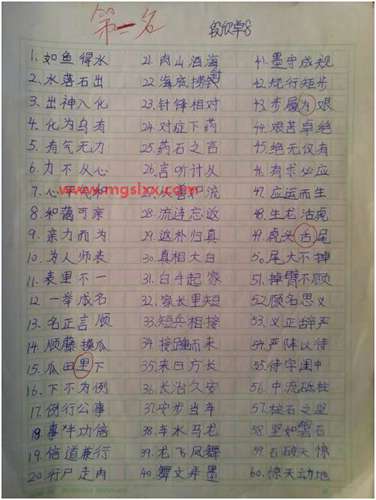 第一名
1. 如鱼得水
2. 水落石出
3. 出神入化
4. 化为乌有
5. 有气无力
6. 力不从心
7. 心平气和
8. 和蔼可亲
9. 亲力而为
10. 为人师表
11. 表里不一
12. 一举成名
13. 名正言顺
14. 顺藤摸瓜
15. 瓜田里下
16. 下不为例
17. 例行公事
18. 事半功倍
19. 倍道兼行
20. 行尸走肉
21. 肉山酒海
22. 海底捞针
23. 针锋相对
24. 对症下药
25. 药石之言
26. 言听计从
27. 从善如流
28. 流连忘返
29. 返朴归真
30. 真相大白
31. 白手起家
32. 家长里短
33. 短兵相接
34. 接踵而来
35. 来日方长
36. 长治久安
37. 安步当车
38. 车水马龙
39. 龙飞凤舞
40. 舞文弄墨
41. 墨守成规
42. 规行矩步
43. 步履为艰
44. 艰苦卓绝
45. 绝无仅有
46. 有求必应
47. 应运而生
48. 生龙活虎
49. 虎头尾
50. 尾大不掉
51. 掉臂不顾
52. 顾名思义
53. 义正辞严
54. 严阵以待
55. 待字闺中
56. 中流砥柱
57. 柱石之坚
58. 坚如磐石
59. 石破天惊
60. 惊天动地
www.mgslxx.com